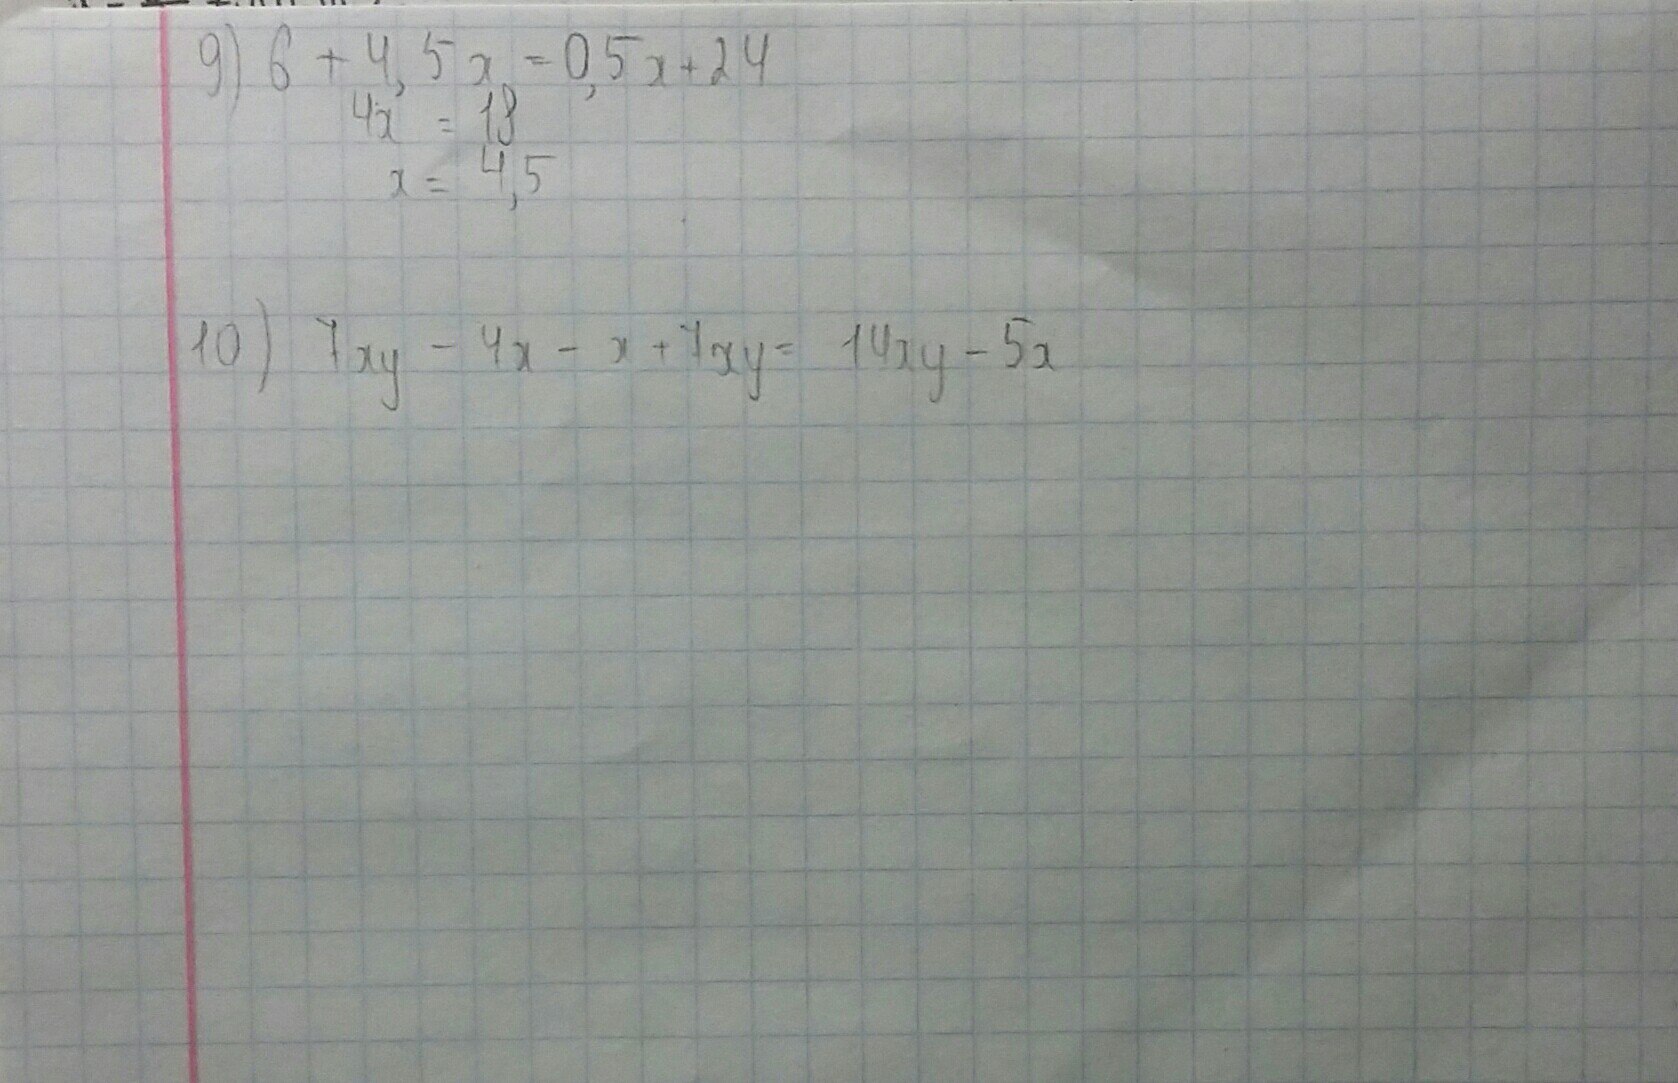 9) 6 + 4,5x = 0,5x + 24
4x = 18
x = 4,5
10) 7xy - 4x - x + 7xy = 14xy - 5x